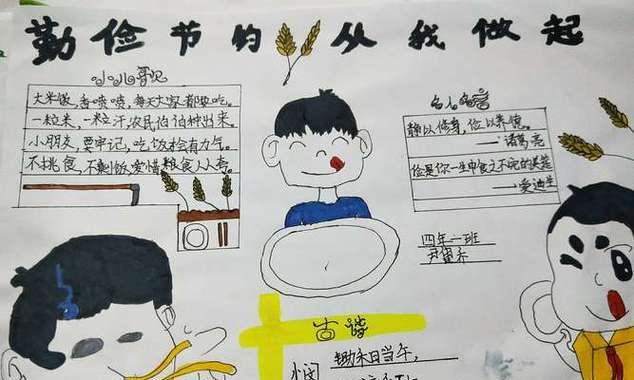 勤俭节约 从我做起
小儿哥见
大米饭,香喷喷,每天大家都要吃。
一粒米,一粒汗,农民伯伯种出来。
小朋友,要牢记,吃饭才会有力气。
不挑食,不剩饭,爱惜粮食人人夸。
名人名言
静以修身,俭以养德。
——诸葛亮
俭是你一生中食之不完的美筵
——爱迪生
四年一班
古诗
锄禾日当午,